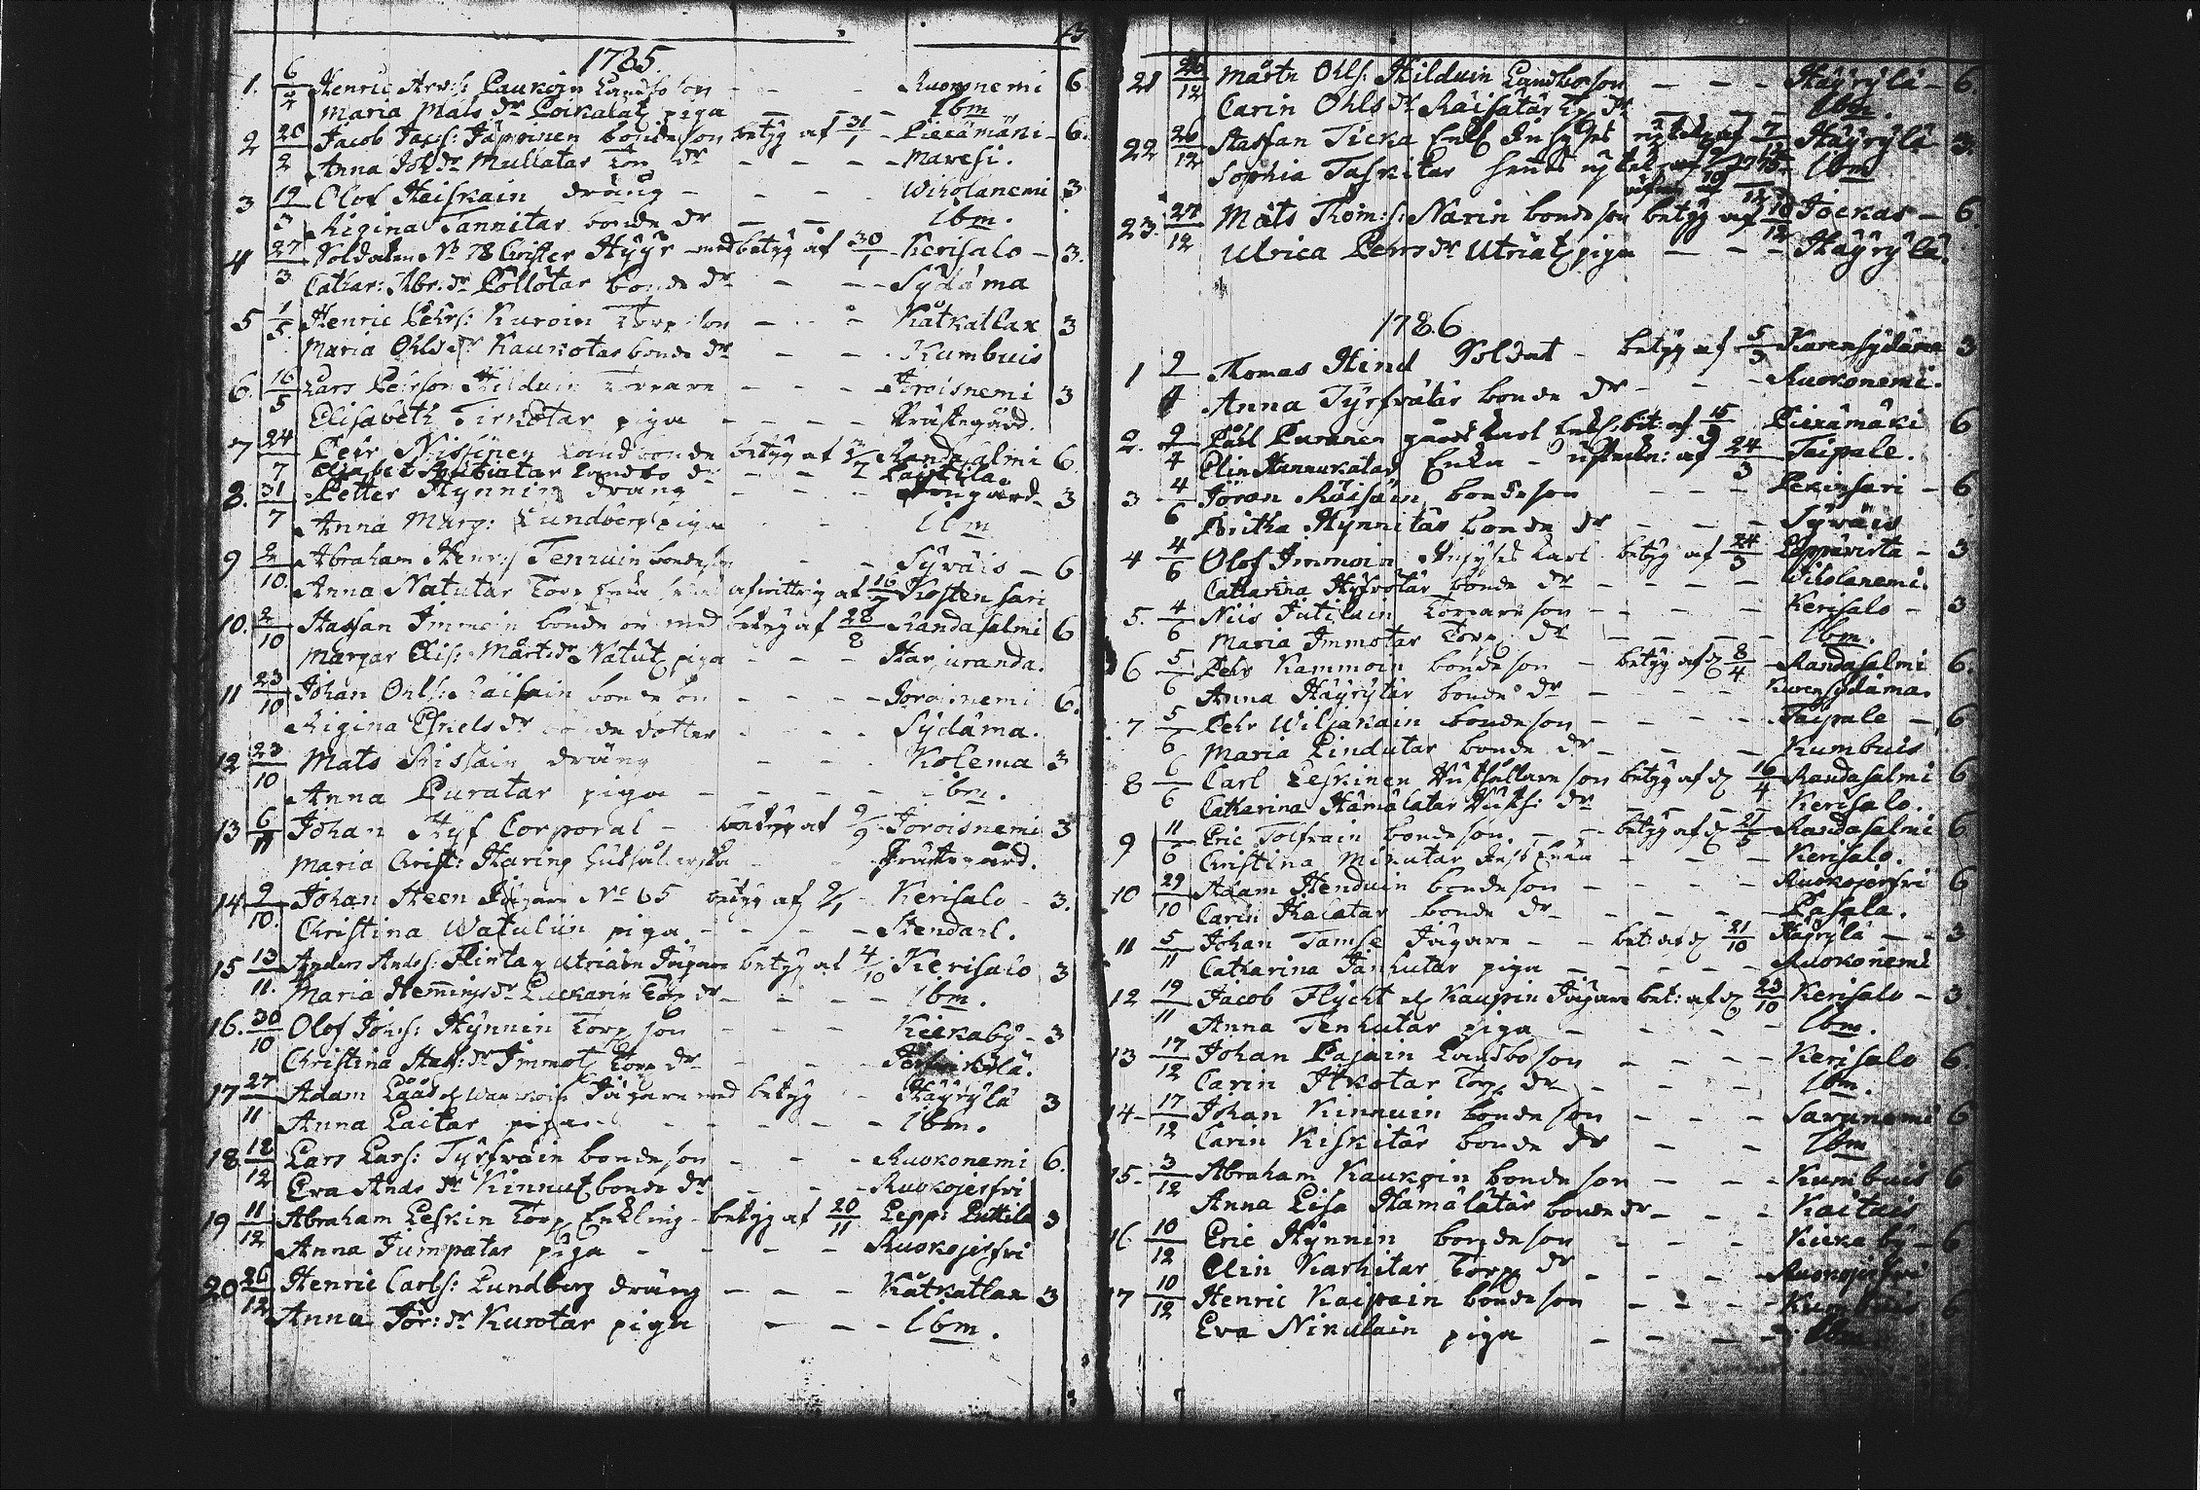 1785
1. 6/2 Henric Landbo son - - - 6
Maria Mats dr piga - - Ibm
2 20/2 Jacob Jacs: bondeson betyg af 31/1 - Piexämäki - 6.
Anna Joh dr Mullatar Torp dr - - - Maresi.
3 19/3 Olof Heiskain dräng - - - Wiholanemi 3
Regina Tannitar bonde dr - - Ibm.
4 27/3 Soldaten No 78 Christer Hyyr med betyg af 30/1 - Kerisalo - 3.
Cathar: Abr: dr Pöllötar bonde dr - - - Sydäma
5 1/5 Henric Pehrs: Kuroin Torp son - - - Kåtkatlax 3
Maria Ohls dr Kaukotar bonde dr - - Kumbuis
6. 16/5 Lars Pehrson Hilduin Torpare - - - Joroisnemi 3
Elisabeth piga - - - Prästegård.
7 24/7 Pehr Nissinen Landbonde betyg af Randasalmi 6
Landbo dr - - Paistila
8. 31/7 Petter Hynnin dräng - - - 3
Anna Marg: Lundberg piga - - Ibm
9 2/10 Abraham Henr: s Tenruin bondeson - - Syväis - 6
Anna Natutar Torp af 16/7 Kosten sari
10. 2/10 Staffan Immoin bonde son med betyg af 28/8 Randasalmi 6
Margar Elis: Mårts dr Natut piga - - - Harjuranda.
11 23/10 Johan Ohls: Räisäin bonde son - - - Joroisnemi 6.
Regina bonde dotter - - - Sydäma.
12 23/10 Mats dräng - - - Kolema 3
Anna Puratar piga - - - Ibm.
13 6/11 Johan Hyf Corporal - betyg af 2/9 Joroisnemi 3
Maria Christ: Haring - - Prästegård.
14 2/10. Johan Heen Jägare No 65 betyg af 2/1 - Kerisalo - 3.
Christina Watulin piga - - - Stendahl.
15 13/11. Anders Ands: Utriain Jägare betyg af 4/10 Kerisalo 3
Maria Hemmings dr Torp dr - - - Ibm.
16. 30/10 Olof Johs: Hynnin Torp son - - - Kiekaby - 3
Christina Staf: dr Immot Torp dr - - -
17 27/11 Adam Jägare med betyg - Häyrylä 3
Anna Laitar piga - - - Ibm.
18 18/12 Lars Lars: Tyrfväin bondeson - - - Ruokonemi 6.
Eva Ands dr Kinnut bonde dr - - Ruokojerfvi
19 11/12 Abraham Leskin Torp Enkling - betyg af 20/11 Lepp: Puttila 3
Anna Jumpatar piga - - - - Ruokojerfvi
20 26/12 Henric Carls: Lundberg dräng - - - Kåtkatlax 3
Anna Jör: dr Kurotar piga - - - Ibm.
21 26/12 Mårtn Ohls: Hilduin Landboeson - - - Häyrylä - 6.
Carin Ohls dr Räisätär Torp dr - - Ibm.
22 26/12 Staffan Ticka Enkl Inhyses af 7/12 Häyrylä 3.
Sophia Taskitar Ibm
23. 27/12 Mats Thom: s: Narin bonde son betyg af 10/12 Jockas - 6
Ulrica Pehrs dr Utriat piga - - - Häyrylä.
1786
1 2/4 Thomas Hind Soldat - betyg af 5/3 Karensydäma 3
Anna Tyrfvätär bonde dr - - - Ruokonemi.
2. 2/4 Påhl Puranen af 15/3 Piexämäki 6
Elin Hannukatar Enka - af 24/3 Taipale.
3 4/6 Jöran Räisäin bondeson - - - Pekinsari - 6
Britha Hynnitär bonde dr - - - Syväis
4 4/6 Olof Immoin Inhyses karl betyg af 24/3 Leppävirta - 3
Catharina Hyfvötär bonde dr - - - Wiholanemi.
5. 4/6 Nils Jutilain Torpareson - - - Kerisalo - 3
Maria Immotar Torp dr - - - Ibm.
6 5/6 Pehr Kammoin bondeson - betyg af d 8/4 Randasalmi 6.
Anna Häyrytär bonde dr - - - Karensydäma.
7 5/6 Pehr Wiljakain bondeson - - - Taipale - 6
Maria Pindutar bonde dr - - - Kumbuis
8 6/6 Carl Leskinen son betyg af d 16/4 Randasalmi 6
Catharina Hämälätar dr - - - Kerisalo.
9 11/6 Eric Tolfvain bondeson - - betyg af d 21/5 Randasalmi 6
Christina Mikutar - - - Kerisalo.
10 29/10 Adam Henduin bondeson - - - Ruokojerfvi 6
Carin Kalatar bonde dr - - - Pasala.
11 5/11 Johan Tamse Jägare - - bet: af d 21/10 Häyrylä - 3
Catharina Janhutar piga - - - Ruokonemi
12 19/11 Jacob Flycht el Kaupin Jägare bet: af d 23/10 Kerisalo - 3
Anna Tenhutar piga - - - Ibm.
13 17/12 Johan Pajain Landbo son - - - Kerisalo 6.
Carin Itkotar Torp dr - - - Ibm.
14 - 17/12 Johan Kinnuin bonde son - - - Savunemi 6
Carin Kiskitär bonde dr - - Ibm
15 - 3/12 Abraham Kaukoin bondeson - - - Kumbuis 6
Anna Lisa Hämälätär bonde dr - - - Kaitais
16 10/12 Eric Hynnin bondeson - - - Kiekaby - 6
Elin Karhitar Torp dr - - - Ruokojerfvi
17 10/12 Henric Kaipain bonde son - - - Kumbuis 6
Eva Nikulain piga - - - Ibm